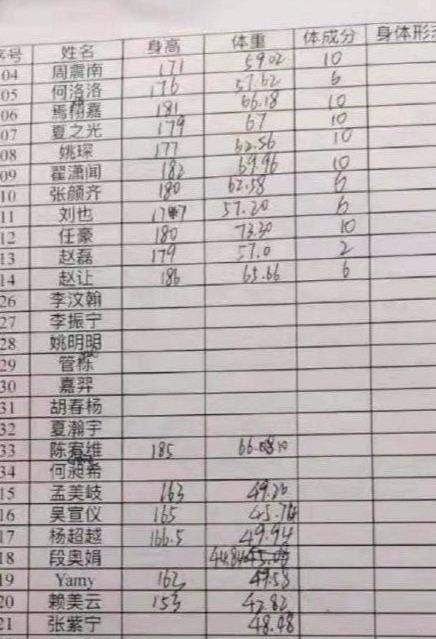 序号 姓名 身高 体重 体成分 身体形
04 周震南 171 59.02 10
05 何洛洛 176 57.62 6
06 焉栩嘉 181 66.18 10
07 夏之光 179 67 10
08 姚琛 177 62.56 10
09 翟潇闻 182 69.96 10
10 张颜齐 180 62.58 6
11 刘也 177 57.20 6
12 任豪 180 73.30 10
13 赵磊 179 57.0 2
14 赵让 186 65.66 6
26 李汶翰
27 李振宁
28 姚明明
29 管栎
30 嘉羿
31 胡春杨
32 夏瀚宇
33 陈宥维 185
34 何昶希
15 孟美岐 163 49.20
16 吴宣仪 165 45.74
17 杨超越 166.5 49.94
18 段奥娟 44.84
19 Yamy 162 49.58
20 赖美云 153 42.82
21 张紫宁 48.48